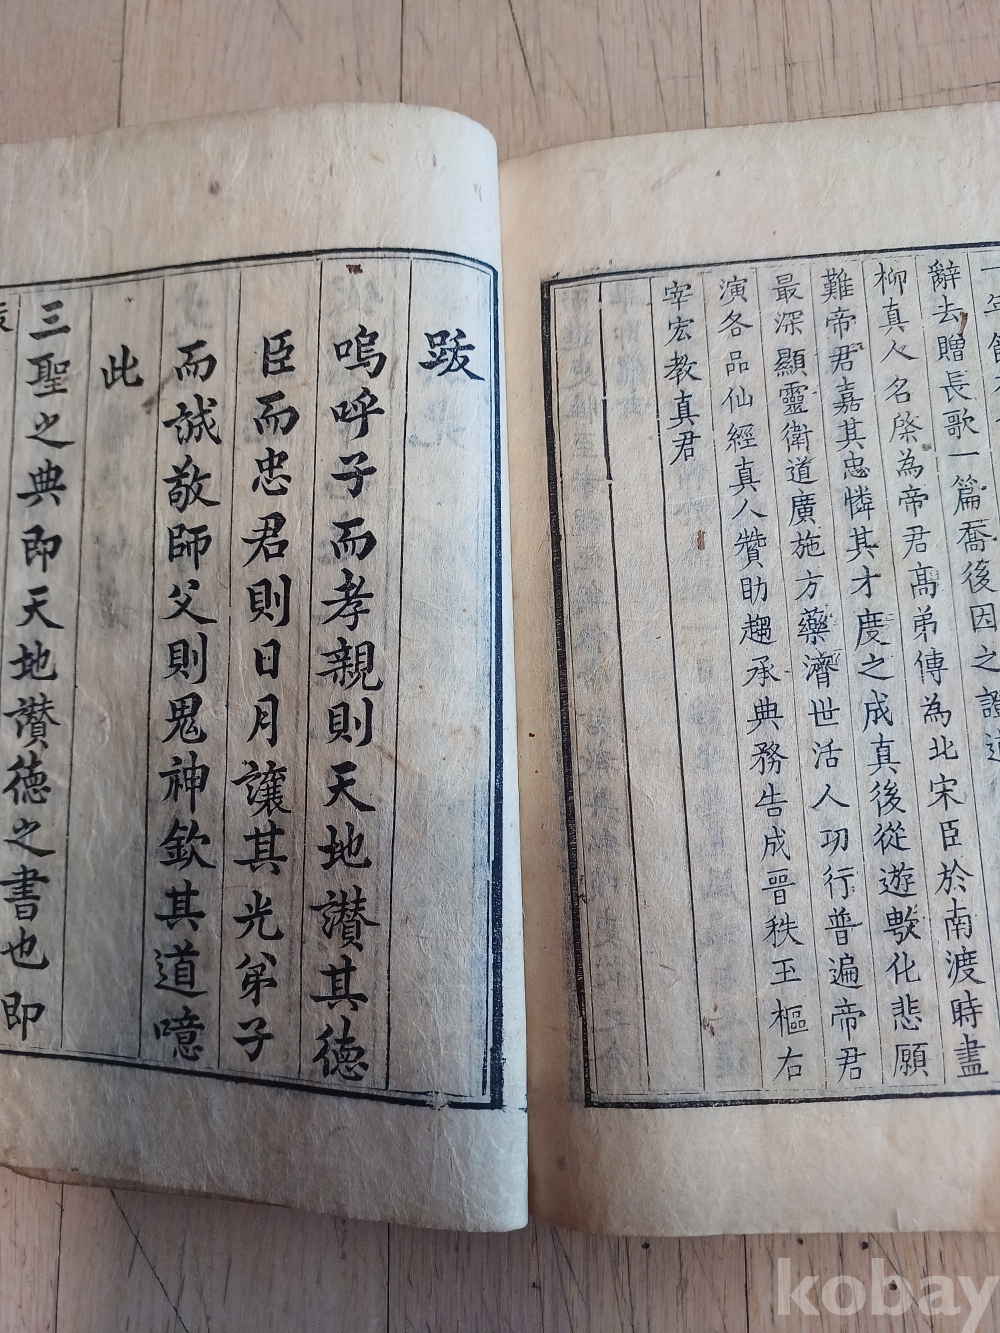 辭去贈長歌一篇喬後因之證道
柳真人名棨為帝君高弟傳為北宋臣於南渡時盡
難帝君嘉其忠憐其才度之成真後從遊歟化悲願
最深顯靈衛道廣施方藥濟世活人功行普遍帝君
演各品仙經真人贊助趨承典務告成晉秩玉樞右
宰宏教真君
跋
嗚呼子而孝親則天地讃其德
臣而忠君則日月讓其光弟子
而誠敬師父則鬼神欽其道噫
此
三聖之典即天地讃德之書也即
kobay